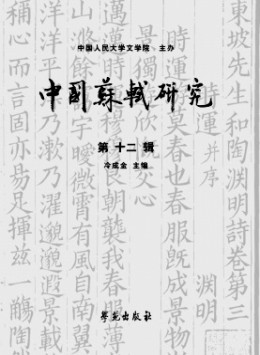 中国人民大学文学院 主办
中國蘇軾研究
第十二辑
冷成金 主编
學苑出版社
東坡先生和陶淵明詩卷第三
時運 并序 淵明
春也春服既成景物
景獨 欣慨交心
邁邁時運穆穆良朝襲我春服薄
宇曖微霄有風自南翼
乃漱乃濯邈邈遐景載
稱心而言固亦易足揮茲一觴陶